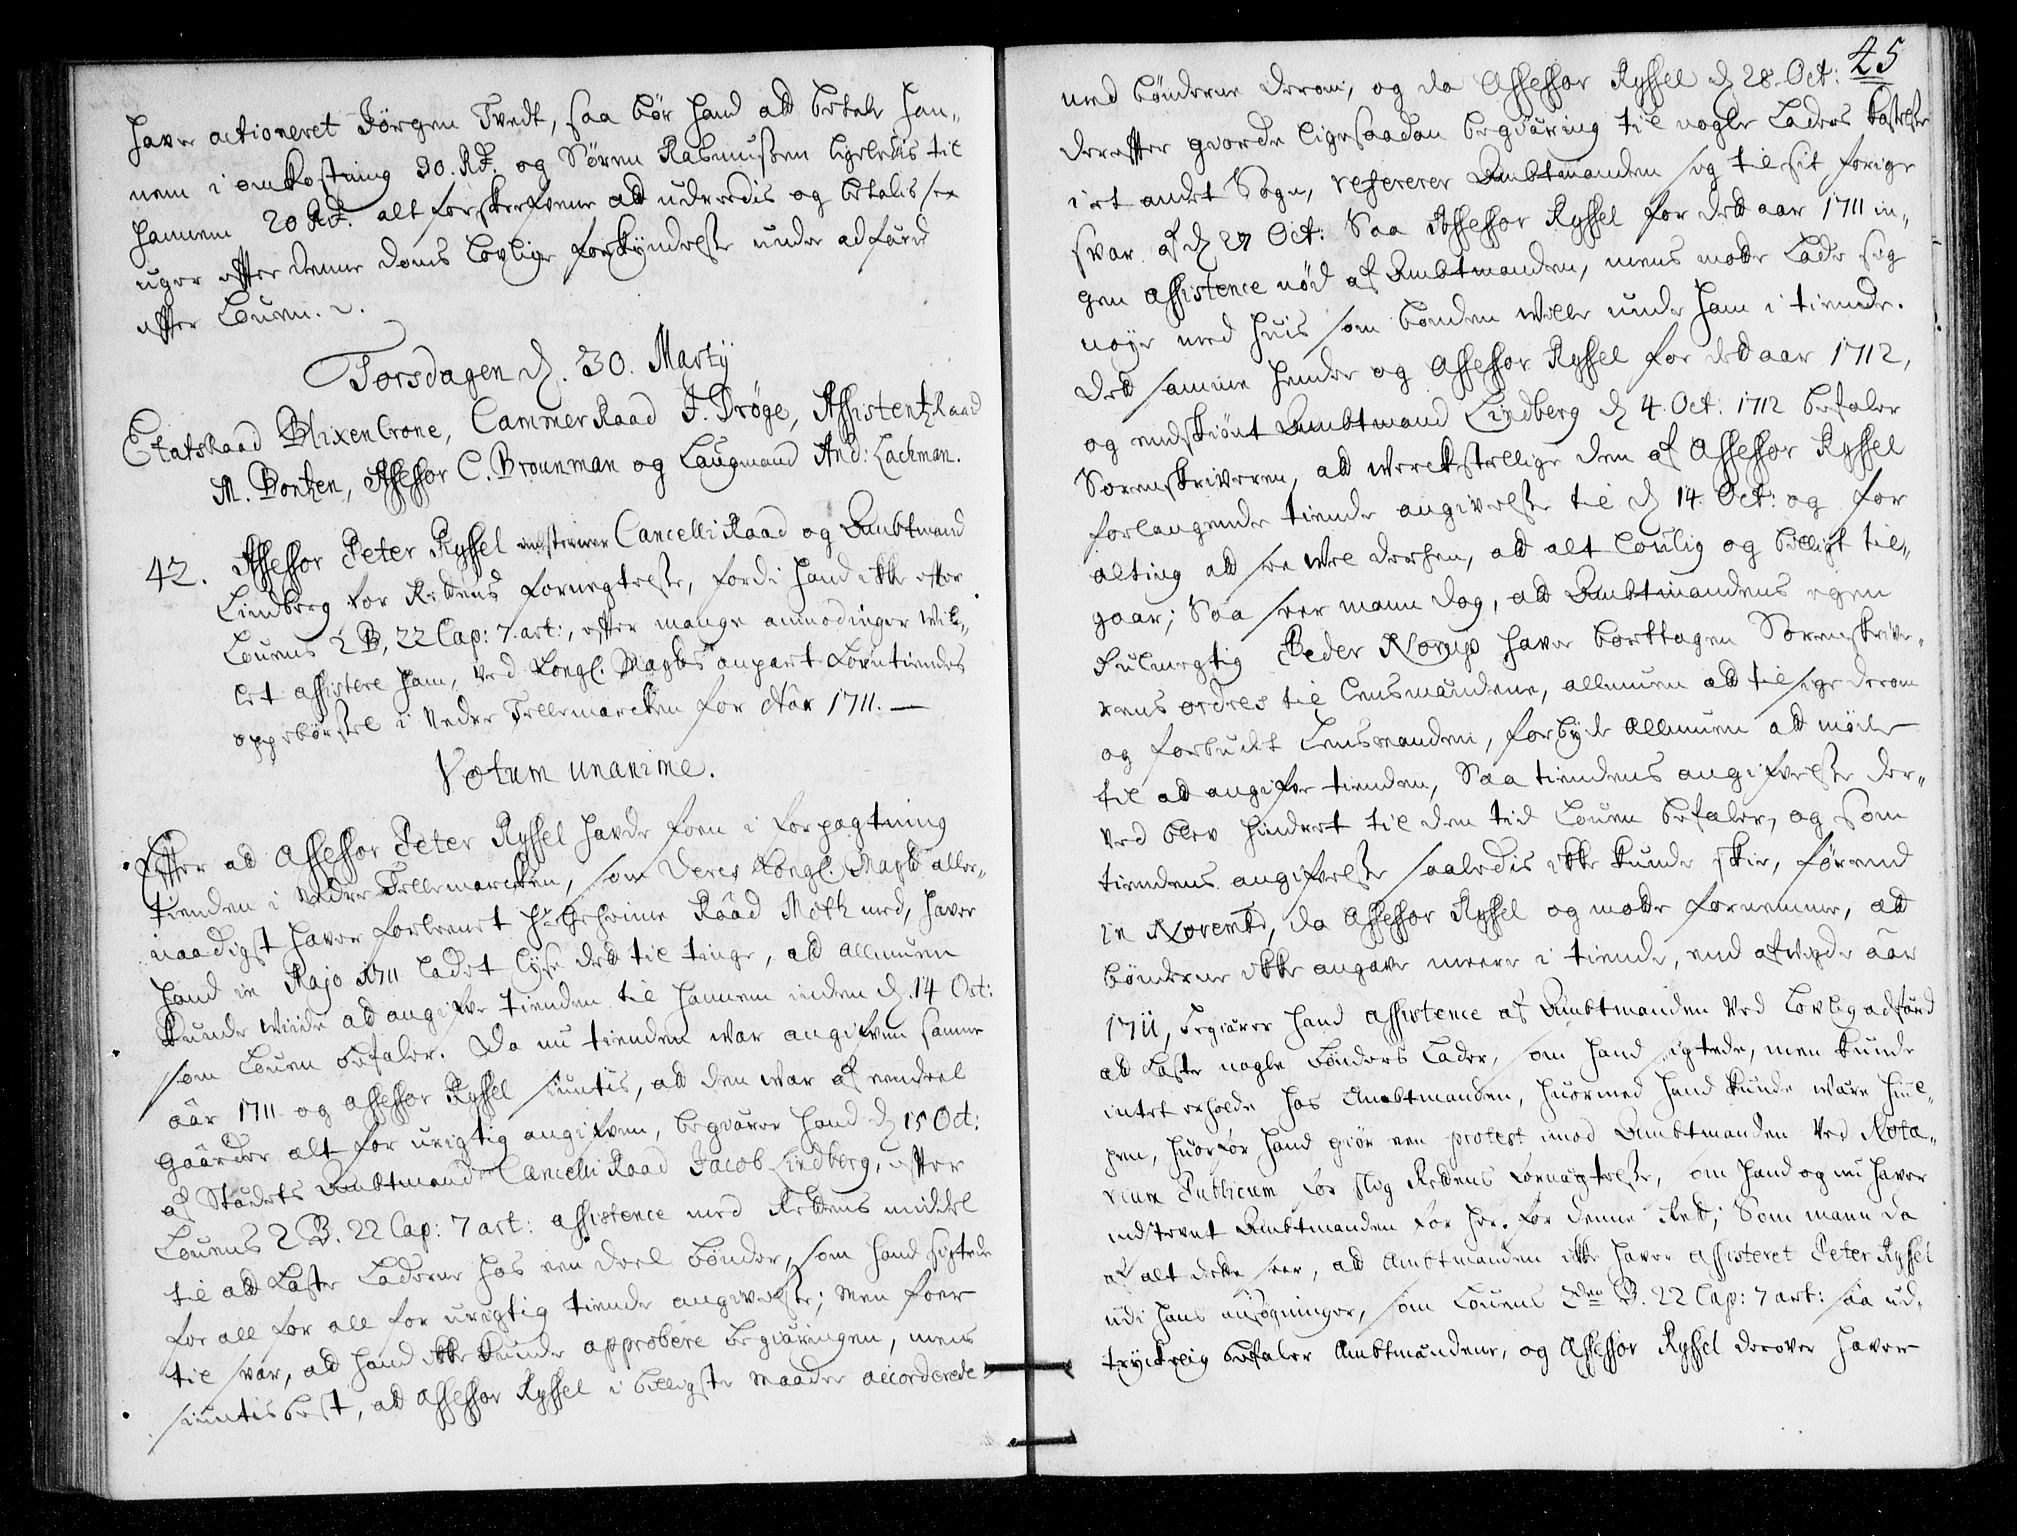 haver actioneret Jørgen Tvedt, saa bør hand att betale han„
nem i omkostning 30. Rd. og Søren Rasmussen ligeledis til
hannem 20 Rd. alt forskrefvene att udredis og betalis
uger efter denne doms lovlige forkyndelse under adfærd
efter Louen.
Torsdagen d. 30. Marty
Etatsraad Blixencrone, CammerRaad F. Drøge, AssistentzRaad
M. Bentzen, Assessor C. Brounman og Laugmand And: Lachman.
42. Assessor Peter Ryssel indstevner CancelliRaad og Ambtmand
Lindberg for Rettens fornegtelse, fordi hand ikke efter
Louens 2 B. 22 Cap: 7. art:, efter mange anmodninger vil„
let assistere ham, ved Kongl. Mayts anpart Korntiendes
oppebørsel i Neder Tellemarcken for Aar 1711. —
Votum unanime.
Efter at Assessor Peter Ryssel hafde faaen i forpagtning
tienden i Nedre Tellemarcken, som Deres Kongl. Mayt aller„
naadigst haver forleent Hr Geheime Raad Moth med, haver
hand in Majo 1711 ladet lyse det til tinge, at allmuen
kunde viide at angifve tienden til hannem inden d. 14 Oct:
som Louen befaler. Da nu tienden war angifven samme
aar 1711 og Assessor Ryssel siuntis, at den war af een deel
gaarder alt for urigtig angifven, begiærer hand d. 15 Oct:
af Stædets Ambtmand CancelliRaad Jacob Lindberg, efter
Louens 2 B. 22 Cap: 7 art: assistence med Rettens middel
til att kaste Laderne hos een deel bønder, som hand sigtede
for all for all for urigtig tiende angivelse; men faaer
til svar, att hand ikke kunde approbere begiæringen, mens
siuntis best, att Assessor Ryssel i billigste maade accorderede
45
med bønderne derom, og da Assessor Ryssel d. 28 Oct:
derefter giorde ligesaadan begiæring til nogle Laders kastelse
i et andet Sogn, refererer Ambtmanden sig til sit forige
svar af d. 27 Oct: Saa Assessor Ryssel for det aar 1711 in„
gen assistence nød af Ambtmanden, mens motte lade sig
nøye med huis som bonden wille unde ham i tiende.
Det samme hender og Assessor Ryssel for det aar 1712,
og endskiønt Ambtmand Lindberg d. 4. Oct. 1712 befaler
Sorenskriveren, att werckstellige den af Assessor Ryssel
forlangende tiende angivelse til d. 14. Oct: og for
alting att see wel derhen, att alt lovlig og billigt til„
gaar; Saa seer mann dog, att Ambtmandens egen
Fulmegtig Peder Norup haver borttagen Sorenskrive„
rens ordres til Lensmændene, allmuen att tilsige derom
og forbudet Lensmanden, forbyde Allmuen att møde
til att angifve tienden, Saa tiendens angifvelse der„
ved blev hindret til den tid Louen befaler, og som
tiendens angifvelse saaledis ikke kunde skie, førend
in Novembr, da Assessor Ryssel og motte fornemme, att
bønderne ikke angave meere i tiende, end afvigte aar
1711, begiærer hand assistence af Ambtmanden ved lovlig adfærd
att kaste nogle bønders Lader, som hand sigtede, men kunde
intet erholde hos Ambtmanden, huormed hand kunde være hiul„
pen, huorfor hand giør een protest imod Ambtmanden ved Nota„
rium Publicum for slig Rettens fornægtelse, om hand og nu haver
indstevnt Ambtmanden for her for denne Rett; Som mann da
af alt dette seer, att Ambtmanden ikke haver assisteret Peter Ryssel
udi hans ansøgninger, som Louens 2den B. 22 Cap: 7 art: saa ud„
tryckelig befaler Ambtmændene, og Assessor Ryssel derover haver